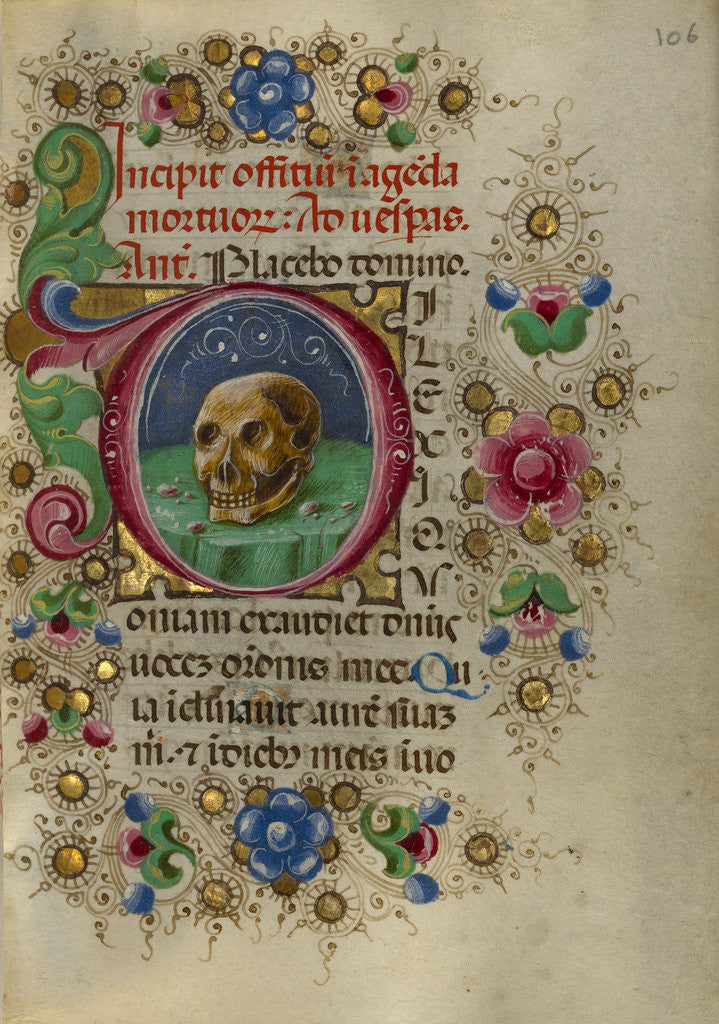 106
Incipit offitiū ī agēda
mortuoꝝ: Ad uesꝑas.
Anť. Placebo domino.
DILEXI QV
oniam exaudiet dn̄s
uocez or̄onis mee. Qu
ia īclinauit aurē suaz
m̄. ⁊ ī dieb⁹ meis īuo